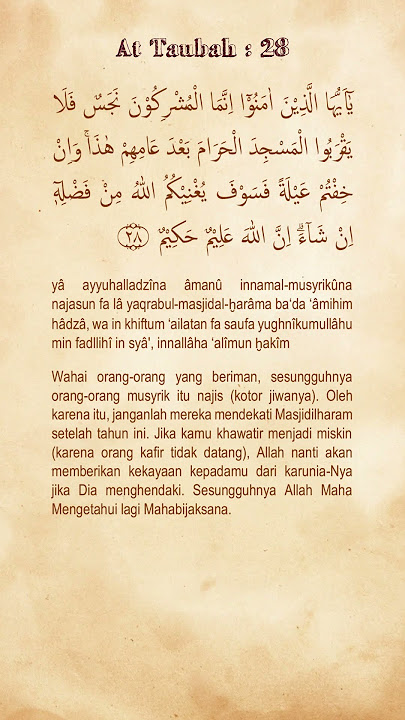 At Taubah : 28
يٰٓاَيُّهَا الَّذِيْنَ اٰمَنُوْٓا اِنَّمَا الْمُشْرِكُوْنَ نَجَسٌ فَلَا
يَقْرَبُوا الْمَسْجِدَ الْحَرَامَ بَعْدَ عَامِهِمْ هٰذَاۚ وَاِنْ
خِفْتُمْ عَيْلَةً فَسَوْفَ يُغْنِيْكُمُ اللّٰهُ مِنْ فَضْلِهٖٓ
اِنْ شَاۤءَۗ اِنَّ اللّٰهَ عَلِيْمٌ حَكِيْمٌ ﴿٢٨﴾
yâ ayyuhalladzîna âmanû innamal-musyrikûna
najasun fa lâ yaqrabul-masjidal-ḫarâma ba‘da ‘âmihim
hâdzâ, wa in khiftum ‘ailatan fa saufa yughnîkumullâhu
min fadllihî in syâ', innallâha ‘alîmun ḫakîm
Wahai orang-orang yang beriman, sesungguhnya
orang-orang musyrik itu najis (kotor jiwanya). Oleh
karena itu, janganlah mereka mendekati Masjidilharam
setelah tahun ini. Jika kamu khawatir menjadi miskin
(karena orang kafir tidak datang), Allah nanti akan
memberikan kekayaan kepadamu dari karunia-Nya
jika Dia menghendaki. Sesungguhnya Allah Maha
Mengetahui lagi Mahabijaksana.